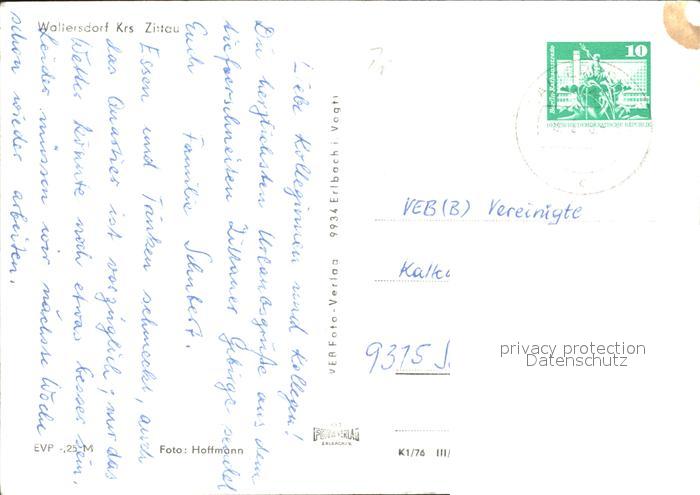 Waltersdorf Krs Zittau
Liebe Kolleginnen und Kollegen!
Die herzlichsten Urlaubsgrüße aus dem
tiefverschneiten Zittauer Gebirge sendet
Euch Familie Schubert.
Essen und Trinken schmeckt, auch
das Quartier ist vorzüglich; nur das
Wetter könnte noch etwas besser sein.
Leider müssen wir nächste Woche
schon wieder arbeiten.
EVP -,25 M
Foto: Hoffmann
VEB Foto-Verlag 9934 Erlbach i Vogtl
FOTO-VERLAG
ERLBACH V.
K1/76 III/
10
Berlin-Rathausstraße
DEUTSCHE DEMOKRATISCHE REPUBLIK
VEB (B) Vereinigte
Kalk
9375
privacy protection
Datenschutz